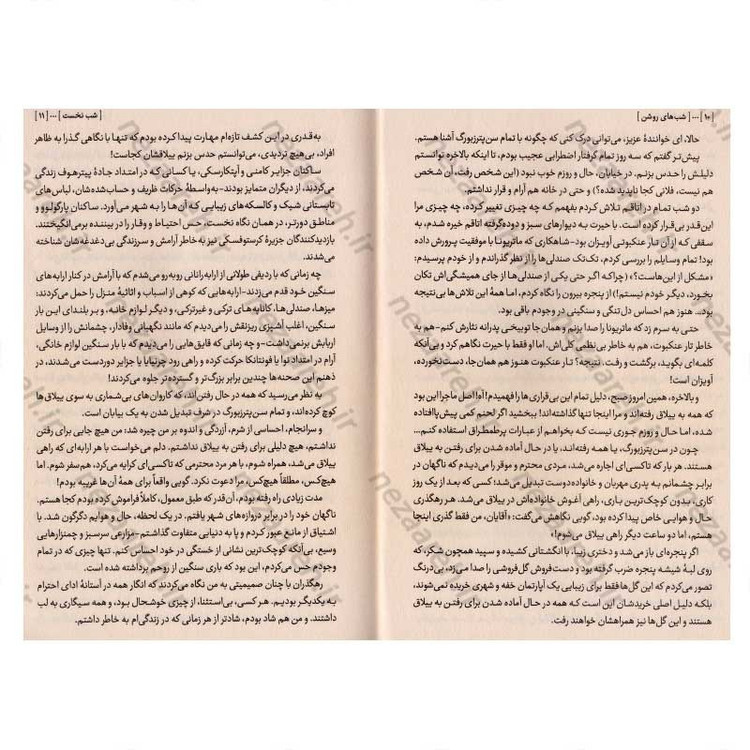 [۱۰] ... [شب‌های روشن]
حالا، ای خوانندهٔ عزیز، می‌توانی درک کنی که چگونه با تمام سن‌پترزبورگ آشنا هستم.
پیش‌تر گفتم که سه روز تمام گرفتار اضطرابی عجیب بودم، تا اینکه بالاخره توانستم
دلیلش را حدس بزنم. در خیابان، حال و روزم خوب نبود (این شخص رفت، آن شخص
هم نیست، فلانی کجا ناپدید شده؟) و حتی در خانه هم آرام و قرار نداشتم.
دو شب تمام در اتاقم تلاش کردم بفهمم که چه چیزی تغییر کرده، چه چیزی مرا
این‌قدر بی‌قرار کرده است. با حیرت به دیوارهای سبز و دوده‌گرفته اتاقم خیره شدم، به
سقفی که از آن تار عنکبوتی آویزان بود-شاهکاری که ماتریونا با موفقیت پرورش داده
بود! تمام وسایلم را بررسی کردم، تک‌تک صندلی‌ها را از نظر گذراندم و از خودم پرسیدم:
«مشکل از این‌هاست؟» (چرا که اگر حتی یکی از صندلی‌ها از جای همیشگی‌اش تکان
بخورد، دیگر خودم نیستم!) از پنجره بیرون را نگاه کردم، اما همهٔ این تلاش‌ها بی‌نتیجه
بود... هنوز هم احساس دل‌تنگی و سنگینی در وجودم باقی بود.
حتی به سرم زد که ماتریونا را صدا بزنم و همان جا توبیخی پدرانه نثارش کنم-هم به
خاطر تار عنکبوت، هم به خاطر بی‌نظمی کلی‌اش، اما او فقط با حیرت نگاهم کرد و بی‌آنکه
کلمه‌ای بگوید، برگشت و رفت. نتیجه؟ تار عنکبوت هنوز هم همان‌جا، دست‌نخورده،
آویزان است!
و بالاخره، همین امروز صبح، دلیل تمام این بی‌قراری‌ها را فهمیدم! آه! اصل ماجرا این بود
که همه به ییلاق رفته‌اند و مرا اینجا تنها گذاشته‌اند! ببخشید اگر لحنم کمی پیش‌پاافتاده
شده، اما حال و روزم جوری نیست که بخواهم از عبارات پرطمطراق استفاده کنم...
چون در سن‌پترزبورگ، یا همه رفته‌اند، یا در حال آماده شدن برای رفتن به ییلاق
هستند. هر بار که تاکسی‌ای اجاره می‌شد، مردی محترم و موقر را می‌دیدم که ناگهان در
برابر چشمانم به پدری مهربان و خانواده‌دوست تبدیل می‌شد؛ کسی که بعد از یک روز
کاری، بدون کوچک‌ترین باری، راهی آغوش خانواده‌اش در ییلاق می‌شد. هر رهگذری
حال و هوایی خاص پیدا کرده بود، گویی نگاهش می‌گفت: «آقایان، من فقط گذری اینجا
هستم، اما دو ساعت دیگر راهی ییلاق می‌شوم!»
اگر پنجره‌ای باز می‌شد و دختری زیبا، با انگشتانی کشیده و سپید همچون شکر، که
روی لبهٔ شیشه پنجره ضرب گرفته بود و دست‌فروش گل‌فروشی را صدا می‌زد، بی‌درنگ
تصور می‌کردم که این گل‌ها فقط برای زیبایی یک آپارتمان خفه و شهری خریده نمی‌شوند،
بلکه دلیل اصلی خریدشان این است که همه در حال آماده شدن برای رفتن به ییلاق
هستند و این گل‌ها نیز همراهشان خواهند رفت.
[شب نخست] ... [۱۱]
به‌قدری در این کشف تازه‌ام مهارت پیدا کرده بودم که تنها با نگاهی گذرا به ظاهر
افراد، بی‌هیچ تردیدی، می‌توانستم حدس بزنم ییلاقشان کجاست!
ساکنان جزایر کامنی و آپتکارسکی، یا کسانی که در امتداد جادهٔ پیترهوف زندگی
می‌کردند، از دیگران متمایز بودند-به‌واسطهٔ حرکات ظریف و حساب‌شده‌شان، لباس‌های
تابستانی شیک و کالسکه‌های زیبایی که آن‌ها را به شهر می‌آورد. ساکنان پارگولوو و
مناطق دورتر، در همان نگاه نخست، حس احتیاط و وقار را در بیننده برمی‌انگیختند.
بازدیدکنندگان جزیرهٔ کرستوفسکی نیز به خاطر آرامش و سرزندگی بی‌دغدغه‌شان شناخته
می‌شدند.
چه زمانی که با ردیفی طولانی از ارابه‌رانانی روبه‌رو می‌شدم که با آرامش در کنار ارابه‌های
سنگین خود قدم می‌زدند-ارابه‌هایی که کوهی از اسباب و اثاثیهٔ منزل را حمل می‌کردند؛
میزها، صندلی‌ها، کاناپه‌های ترکی و غیرترکی، و دیگر لوازم خانه، و بر بلندای این بار
سنگین، اغلب آشپزی ریزنقش را می‌دیدم که مانند نگهبانی وفادار، چشمانش را از وسایل
اربابش برنمی‌داشت-و چه زمانی که قایق‌هایی را می‌دیدم که با بار سنگین لوازم خانگی،
آرام در امتداد نوا یا فونتانکا حرکت کرده و راهی رود چرنیایا یا جزایر دوردست می‌شدند، در
ذهنم این صحنه‌ها چندین برابر بزرگ‌تر و گسترده‌تر جلوه می‌کردند!
به نظر می‌رسید که همه در حال رفتن‌اند، که کاروان‌های بی‌شماری به سوی ییلاق‌ها
کوچ کرده‌اند، و تمام سن‌پترزبورگ در شرف تبدیل شدن به یک بیابان است.
و سرانجام، احساسی از شرم، آزردگی و اندوه بر من چیره شد؛ من هیچ جایی برای رفتن
نداشتم، هیچ دلیلی برای رفتن به ییلاق نداشتم. دلم می‌خواست با هر ارابه‌ای که راهی
ییلاق می‌شد، همراه شوم، با هر مرد محترمی که تاکسی‌ای کرایه می‌کرد، هم‌سفر شوم. اما
هیچ‌کس، مطلقاً هیچ‌کس، مرا دعوت نکرد. گویی واقعاً برای همهٔ آن‌ها غریبه بودم!
مدت زیادی راه رفته بودم، آن‌قدر که طبق معمول، کاملاً فراموش کرده بودم کجا هستم.
ناگهان خود را در برابر دروازه‌های شهر یافتم. در یک لحظه، حال و هوایم دگرگون شد. با
اشتیاق از مانع عبور کردم و پا به دنیایی متفاوت گذاشتم-مزارعی سرسبز و چمنزارهایی
وسیع، بی‌آنکه کوچک‌ترین نشانی از خستگی در خود احساس کنم. تنها چیزی که در تمام
وجودم حس می‌کردم، این بود که باری سنگین از روحم برداشته شده است.
رهگذران با چنان صمیمیتی به من نگاه می‌کردند که انگار همه در آستانهٔ ادای احترام
به یکدیگر بودیم. هر کسی، بی‌استثنا، از چیزی خوشحال بود، و همه سیگاری به لب
داشتند. و من هم شاد بودم، شادتر از هر زمانی که در زندگی‌ام به خاطر داشتم.
nezaareh.ir